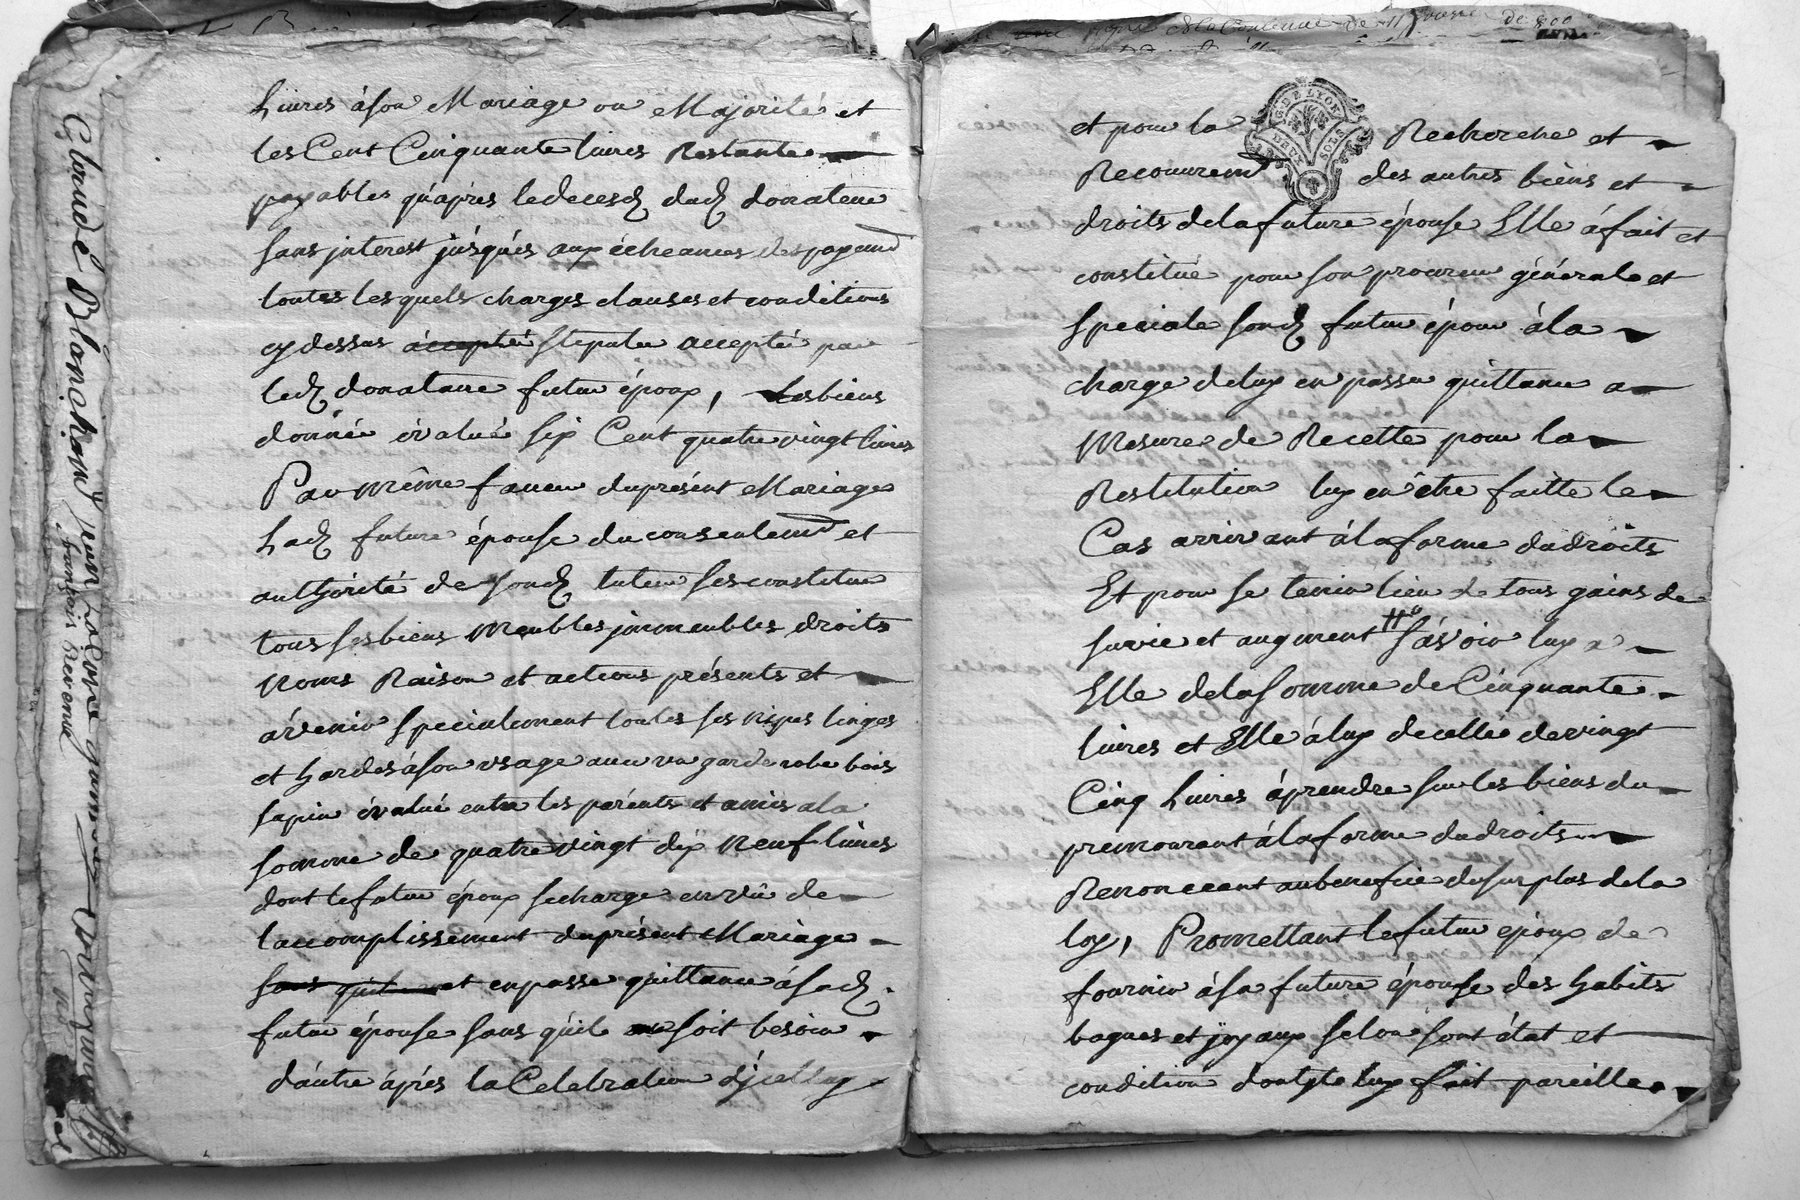 Livres à son Mariage ou Majorité et
les Cent Cinquante livres Restante
payables qu'apres le deces dud donateur
sans interest jusqués aux écheances des payemt
toutes lesquels charges clauses et conditions
cy dessus accepté stipulé accepté par
led donataire futur époux, Lesbiens
donné évalué six Cent quatre vingt livres
Par même faveur du présent Mariage
Lad future épouse du consentemt et
authorité de sond tuteur ses constitue
tous ses biens Meubles jmmeubles droits
Noms Raison et actions présents et
àvenir specialement toutes ses nipes linges
et hardes à son usage avec un garderobe bois
sapin évalué entre les parents et amis a la
somme de quatre vingt dix Neuf livres
dont le futur époux se charge en vûe de
laccomplissement du présent Mariage
sans quil et en passe quittance à sad
futur épouse sans qu'il en soit besoin
d'autre àprés la Celebration d'jcelluy
et pour la Recherche et
Recouvremt des autres biens et
droits de la future épouse Elle à fait et
constitué pour son procureur générale et
speciale sond futur époux à la
charge deluy en passer quittance a
Mesure de Recette pour la
Restitution luy en être faitte le
Cas arrivant à la forme du droits
Et pour se tenir lieu de tous gains de
survie et augment savoir luy a
Elle de la somme de Cinquante
livres et Elle à luy de cellée de vingt
Cinq Livres à prendre sur les biens du
premourant à la forme du droits
Renonceant au benefice du surplus de la
loy, Promettant le futur époux de
fournir à sa future épouse des habits
bagues et joyaux selon sont état et
condition dont jl luy fait pareille
G. DE LYON
DEUX SOLS
Claude Blanchard
françois Revenu